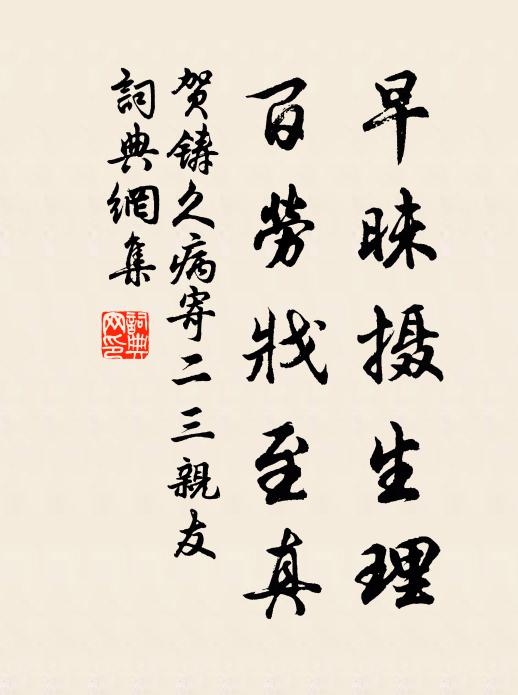 早睐摄生理
百勞戕至真
贺鑄久病寄二三親友
詞典網集
詞典網印